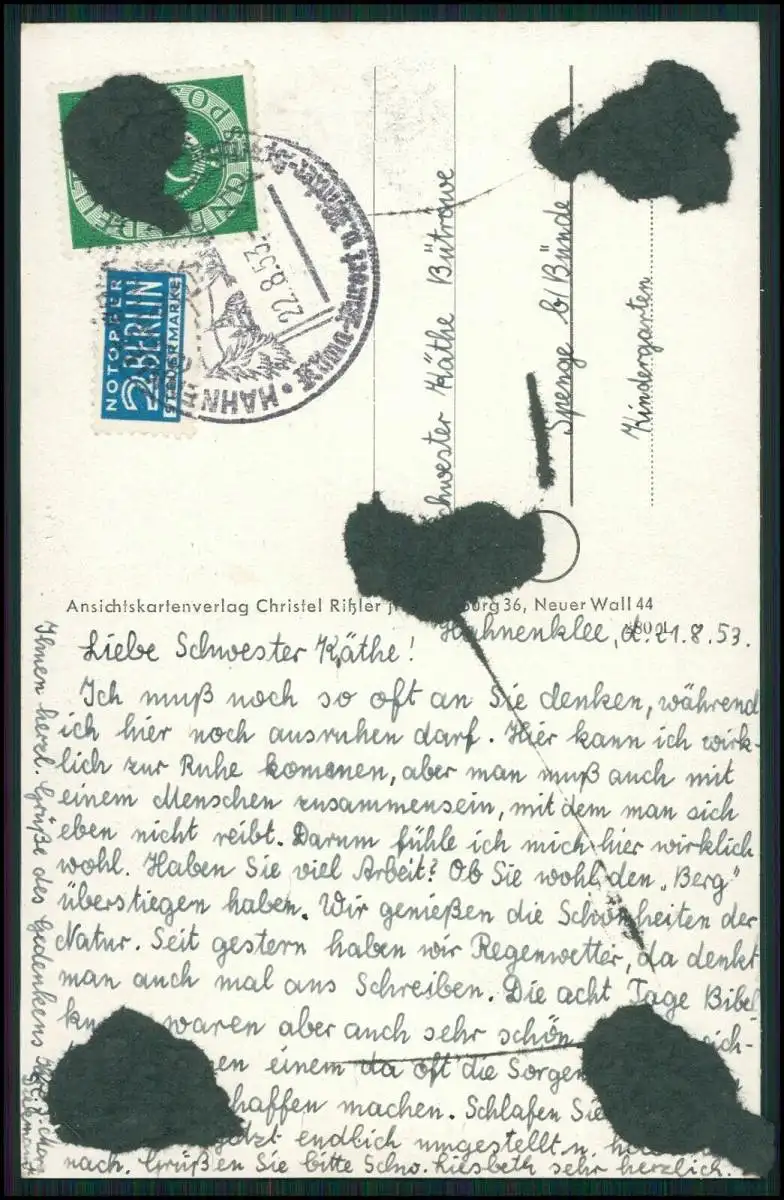 NOTOPFER
2 BERLIN
STEUERMARKE
22.8.53.-
HAHNE
Schwester Käthe Bütröwe
Spenge b/Bünde
Kindergarten
Ansichtskartenverlag Christel Rißler burg 36, Neuer Wall 44
Hahnenklee, d. 21.8.53.
Liebe Schwester Käthe!
Ich muß noch so oft an Sie denken, während
ich hier noch ausruhen darf. Hier kann ich wirk-
lich zur Ruhe kommen, aber man muß auch mit
einem Menschen zusammensein, mit dem man sich
eben nicht reibt. Darum fühle ich mich hier wirklich
wohl. Haben Sie viel Arbeit? Ob Sie wohl den „Berg"
überstiegen haben. Wir genießen die Schönheiten der
Natur. Seit gestern haben wir Regenwetter, da denkt
man auch mal ans Schreiben. Die acht Tage Bibel
waren aber auch sehr schön
einem da oft die Sorgen
haffen machen. Schlafen Sie
jetzt endlich umgestellt u.
nach. Grüßen Sie bitte Schw. Liesbeth sehr herzlich.
Ihnen herzl. Grüße des Gedenkens